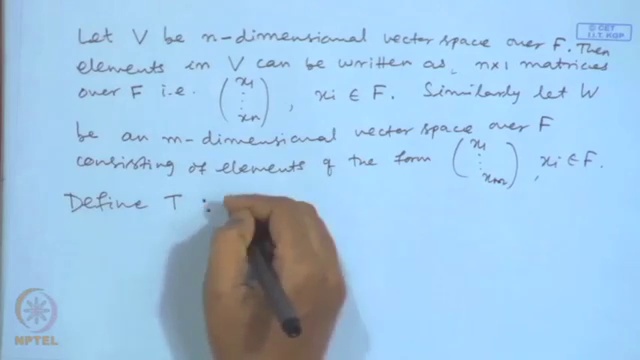 © CET
I.I.T. KGP
Let V be n-dimensional vector space over F. Then
elements in V can be written as, n×1 matrices
over F i.e. (x1 ⋮ xn), xi ∈ F. Similarly let W
be an m-dimensional vector space over F
consisting of elements of the form (x1 ⋮ xm), xi ∈ F.
Define T :
NPTEL